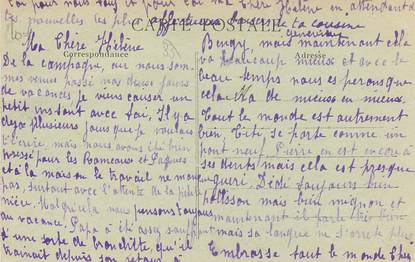 toi pour nous tous et pour toi ma Chère Hélène en attendant de
tes nouvelles les plus affectueux baisers de ta cousine
Geneviève
CARTE POSTALE
Correspondance
Adresse
Ma Chère Hélène
De la campagne où nous som-
mes venus passer nos deux jours
de vacances je viens causer un
petit instant avec toi, Il y a
déjà plusieurs jours que je voulais
t'écrire mais nous avons été bien
pressé pour les Rameaux et Pâques
et à la maison le travail ne manque
pas, surtout avec l'attente de la petite
nièce Malgré cela nous pensons toujours
au vacance. Papa a été assez souffrant
d'une sorte de bronchite qu'il
trainait depuis son retour à
Bengy, mais maintenant elle
va beaucoup mieux et avec le
beau temps nous espérons que
cela ira de mieux en mieux.
Tout le monde est autrement
bien. Titi se porte comme un
pont neuf Pierre en est encore à
ses dents mais cela est presque
guéri. Dédé toujours bien
polisson mais bien mignon et
maintenant il parle très bien
mais sa langue ne s'arrête plus
Embrasse tout le monde chez